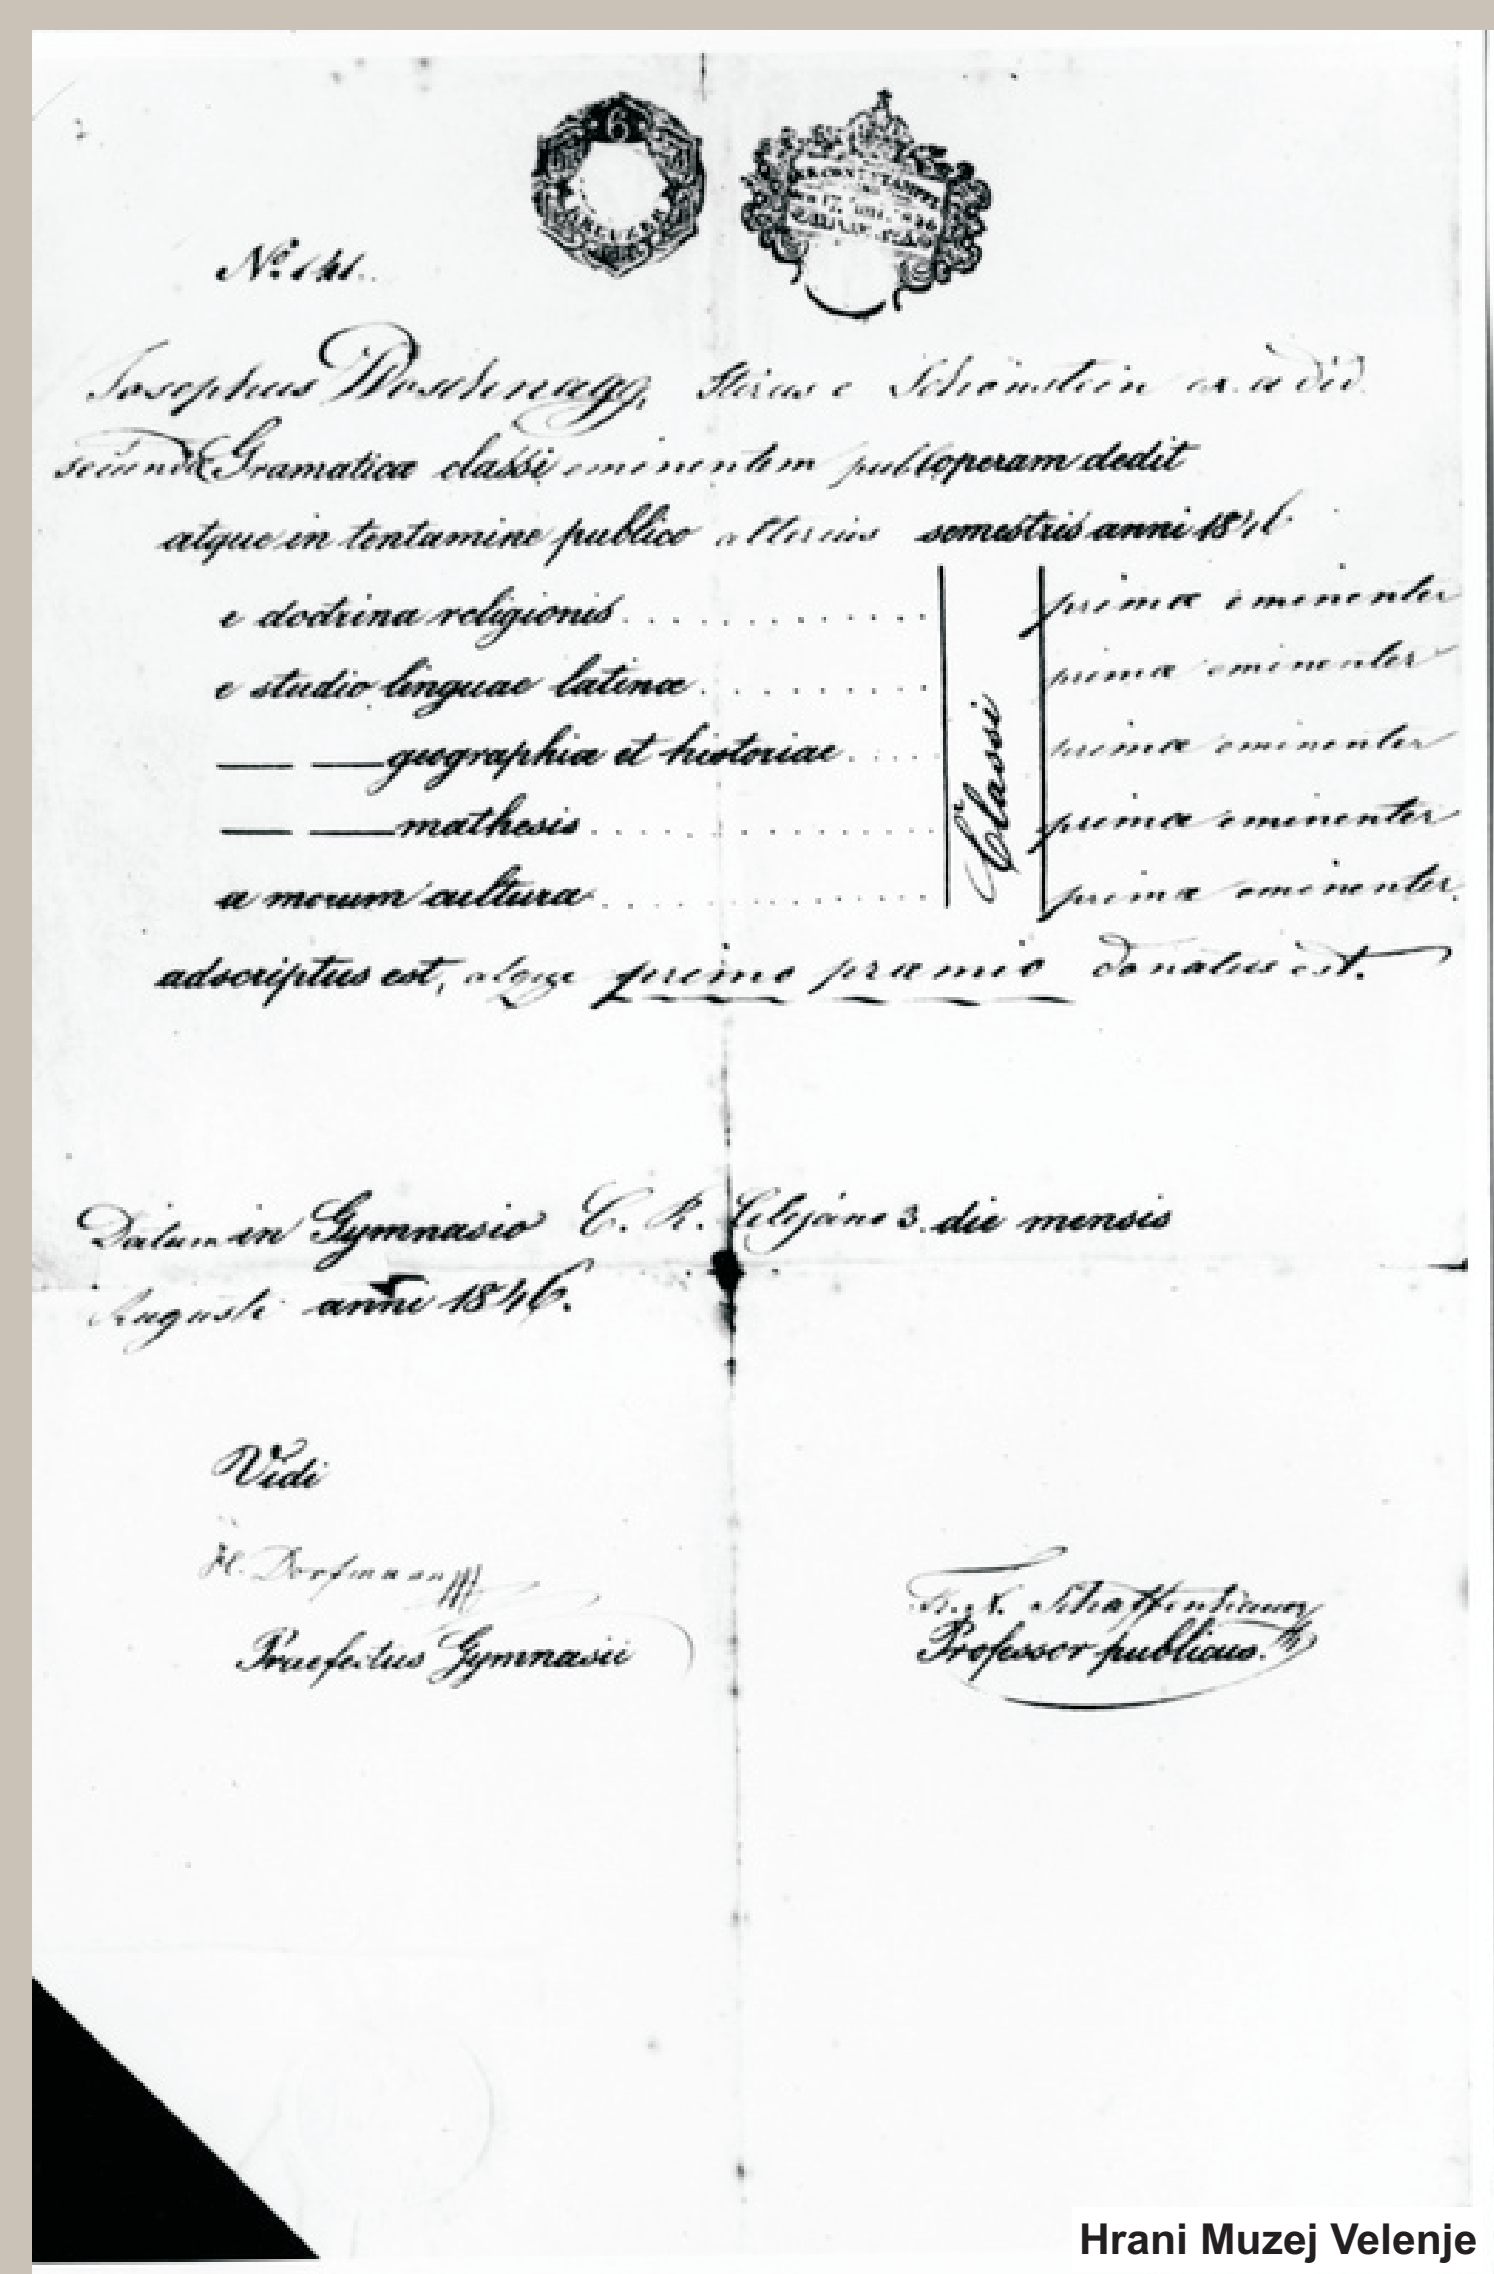 6
KREUZER
Nº 141.
Josephus Woschnagg, Stirus e Schönstein
secundæ Gramaticæ classi eminentem publ operam dedit
atque in tentamine publico alterius semestris anni 1846
e doctrina religionis . . . . . . . . . . . . primæ eminenter
e studio linguae latinæ . . . . . . . . . primæ eminenter
— — geographiæ et historiae . . . . primæ eminenter
— — mathesis . . . . . . . . . . . . . . primæ eminenter
a morum cultura . . . . . . . . . . . . . primæ eminenter.
Classi
adscriptus est, atque primo præmio donatus est.
Datum in Gymnasio C. R. Celejano 3. die mensis
Augusti anni 1846.
Vidi
Dorfmann
Praefectus Gymnasii
Professor publicus.
Hrani Muzej Velenje